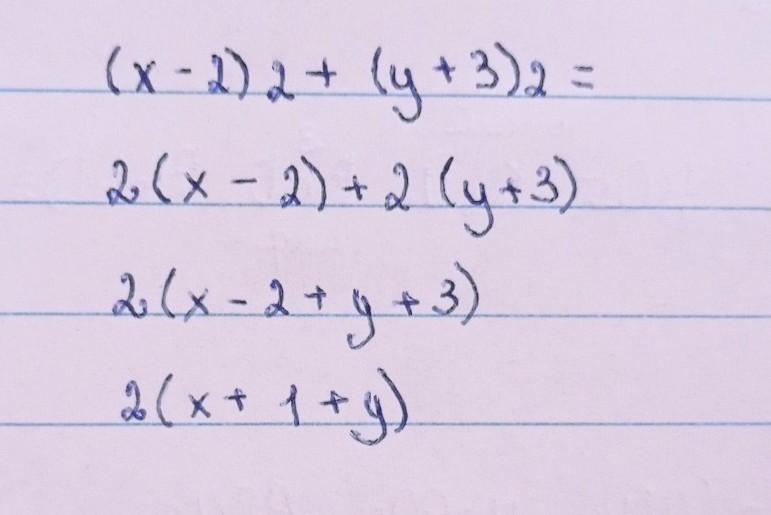 (x - 2) 2 + (y + 3) 2 =
2 (x - 2) + 2 (y + 3)
2 (x - 2 + y + 3)
2 (x + 1 + y)